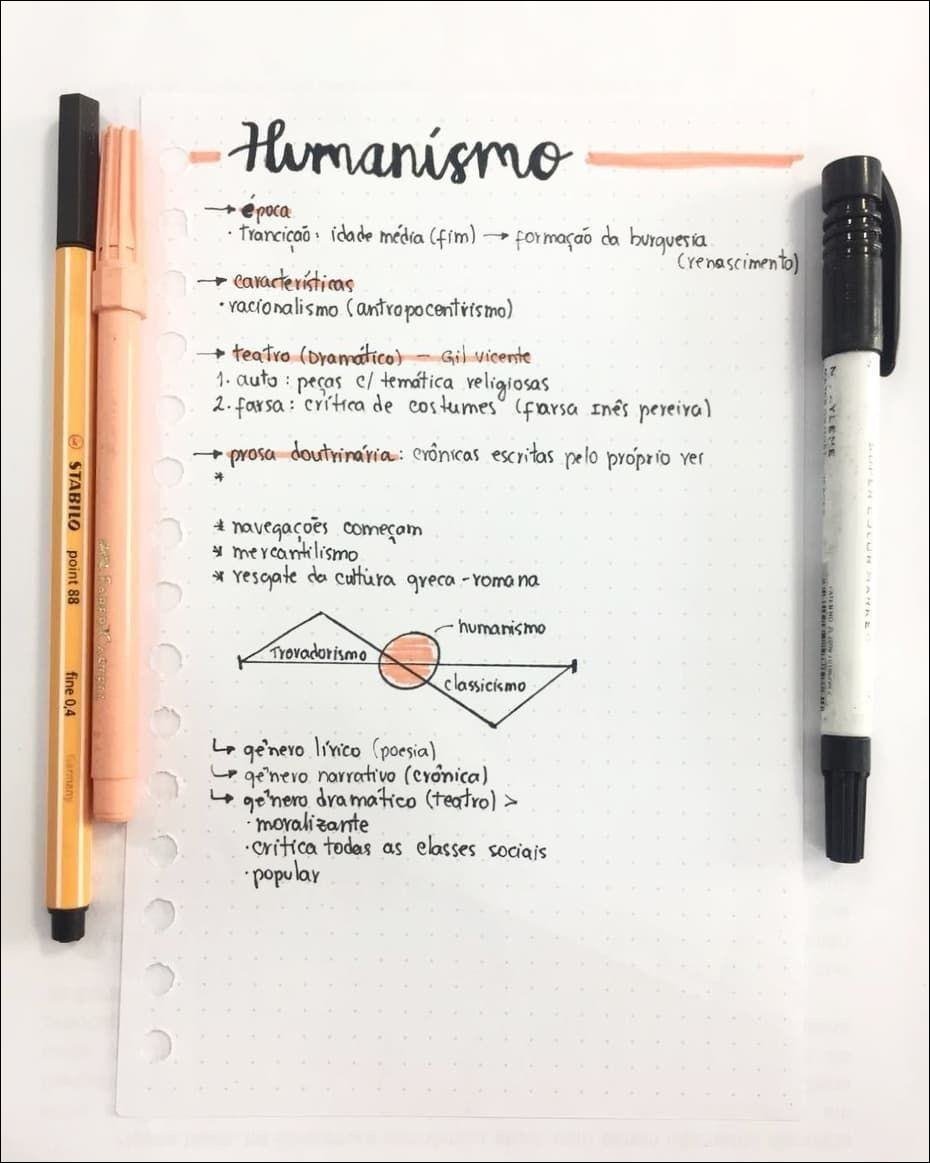 Humanismo
→ época
· trancição: idade média (fim) → formação da burguesia
(renascimento)
→ características
· racionalismo (antropocentrismo)
→ teatro (Dramático) - Gil vicente
1. auto: peças c/ temática religiosas
2. farsa: crítica de costumes (farsa Inês pereira)
→ prosa doutrinária: crônicas escritas pelo próprio rer
*
* navegações começam
* mercantilismo
* resgate da cultura greca-romana
humanismo
Trovadorismo
classicismo
↳ gênero lírico (poesia)
↳ gênero narrativo (crônica)
↳ gênero dramático (teatro) >
· moralizante
· crítica todas as classes sociais
· popular
STABILO point 88 fine 0,4 Germany